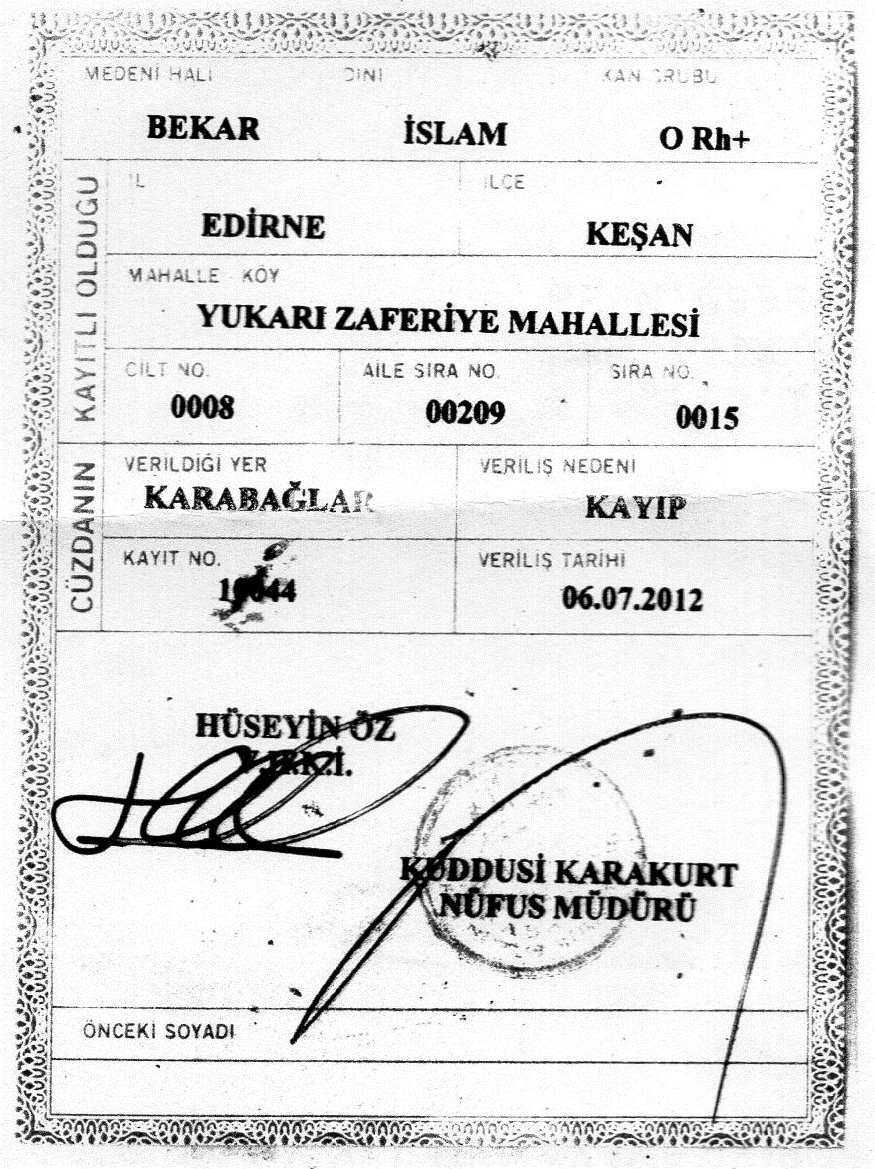 MEDENİ HALİ DİNİ KAN GRUBU
BEKAR İSLAM O Rh+
KAYITLI OLDUĞU
İL İLÇE
EDİRNE KEŞAN
MAHALLE - KÖY
YUKARI ZAFERİYE MAHALLESİ
CİLT NO. AİLE SIRA NO. SIRA NO.
0008 00209 0015
CÜZDANIN
VERİLDİĞİ YER VERİLİŞ NEDENİ
KARABAĞLAR KAYIP
KAYIT NO. VERİLİŞ TARİHİ
06.07.2012
HÜSEYİN ÖZ
V.H.K.İ.
KUDDUSİ KARAKURT
NÜFUS MÜDÜRÜ
ÖNCEKİ SOYADI